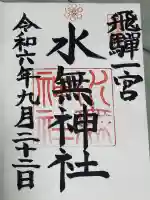 飛騨一宮
水無神社
令和六年九月二十二日